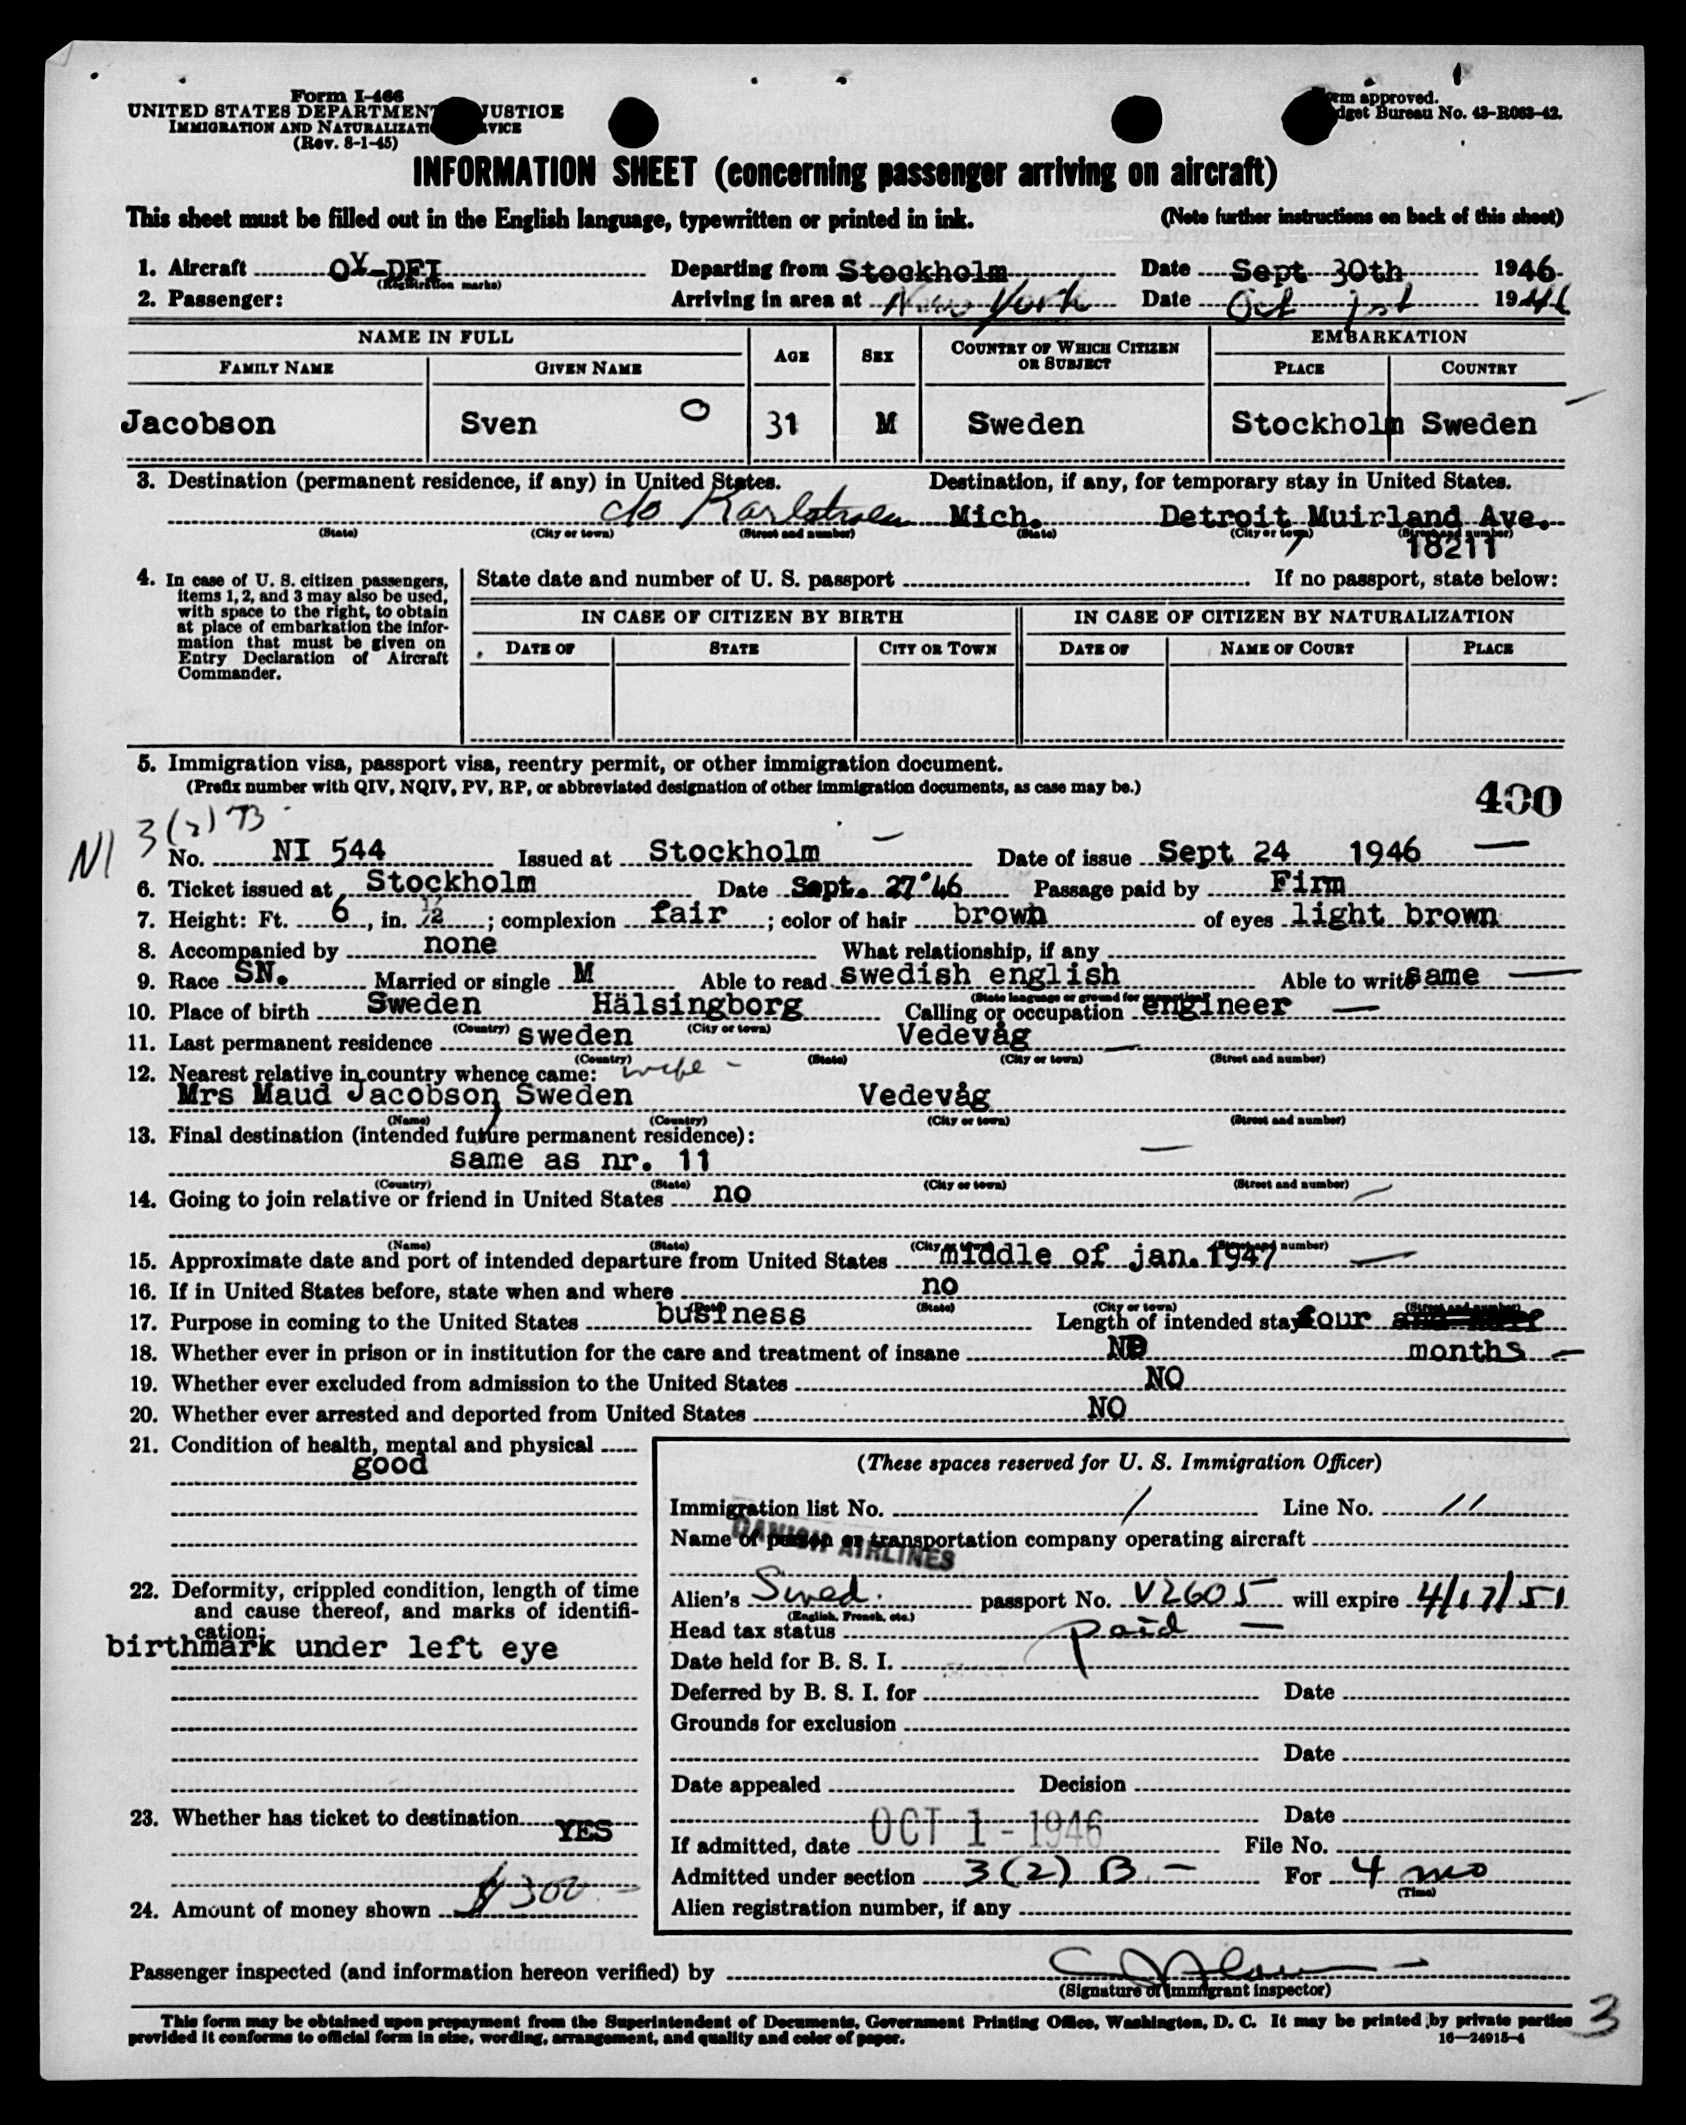 Form I-466
UNITED STATES DEPARTMENT JUSTICE
IMMIGRATION AND NATURALIZATI RVICE
(Rev. 8-1-45)
rm approved.
dget Bureau No. 43-R063-42.
INFORMATION SHEET (concerning passenger arriving on aircraft)
This sheet must be filled out in the English language, typewritten or printed in ink. (Note further instructions on back of this sheet)
1. Aircraft OY-DFI Departing from Stockholm Date Sept 30th 1946
(Registration marks)
2. Passenger: Arriving in area at New York Date Oct 1st 1946
NAME IN FULL AGE SEX COUNTRY OF WHICH CITIZEN OR SUBJECT EMBARKATION
FAMILY NAME GIVEN NAME PLACE COUNTRY
Jacobson Sven O 31 M Sweden Stockholm Sweden
3. Destination (permanent residence, if any) in United States. Destination, if any, for temporary stay in United States.
c/o Mich. Detroit Muirland Ave.
(State) (City or town) (Street and number) (State) (City or town) (Street and number)
18211
4. In case of U. S. citizen passengers, items 1, 2, and 3 may also be used, with space to the right, to obtain at place of embarkation the information that must be given on Entry Declaration of Aircraft Commander.
State date and number of U. S. passport If no passport, state below:
IN CASE OF CITIZEN BY BIRTH IN CASE OF CITIZEN BY NATURALIZATION
DATE OF STATE CITY OR TOWN DATE OF NAME OF COURT PLACE
5. Immigration visa, passport visa, reentry permit, or other immigration document.
(Prefix number with QIV, NQIV, PV, RP, or abbreviated designation of other immigration documents, as case may be.)
400
NI 3(2)B
No. NI 544 Issued at Stockholm Date of issue Sept 24 1946
6. Ticket issued at Stockholm Date Sept. 27'46 Passage paid by Firm
7. Height: Ft. 6, in. ; complexion fair; color of hair brown of eyes light brown
8. Accompanied by none What relationship, if any
9. Race SN. Married or single M Able to read swedish english Able to write same
(State language or ground for exemption)
10. Place of birth Sweden Hälsingborg Calling or occupation engineer
(Country) (City or town)
11. Last permanent residence sweden Vedevåg
(Country) (State) (City or town) (Street and number)
12. Nearest relative in country whence came: wife -
Mrs Maud Jacobson Sweden Vedevåg
(Name) (Country) (City or town) (Street and number)
13. Final destination (intended future permanent residence):
same as nr. 11
(Country) (State) (City or town) (Street and number)
14. Going to join relative or friend in United States no
(Name) (State) (City or town) (Street and number)
15. Approximate date and port of intended departure from United States middle of jan. 1947
16. If in United States before, state when and where no
(State) (City or town) (Street and number)
17. Purpose in coming to the United States business Length of intended stay four
18. Whether ever in prison or in institution for the care and treatment of insane NO months
19. Whether ever excluded from admission to the United States NO
20. Whether ever arrested and deported from United States NO
21. Condition of health, mental and physical
good
22. Deformity, crippled condition, length of time and cause thereof, and marks of identification:
birthmark under left eye
23. Whether has ticket to destination YES
24. Amount of money shown $300.-
(These spaces reserved for U. S. Immigration Officer)
Immigration list No. 1 Line No. 11
Name of person or transportation company operating aircraft
DANISH AIRLINES
Alien's Swed. passport No. V2605 will expire 4/17/51
(English, French, etc.)
Head tax status paid
Date held for B. S. I.
Deferred by B. S. I. for Date
Grounds for exclusion
Date
Date appealed Decision
Date
If admitted, date OCT 1 - 1946 File No.
Admitted under section 3(2)B - For 4 mo
(Time)
Alien registration number, if any
Passenger inspected (and information hereon verified) by
(Signature of immigrant inspector)
This form may be obtained upon prepayment from the Superintendent of Documents, Government Printing Office, Washington, D. C. It may be printed by private parties
provided it conforms to official form in size, wording, arrangement, and quality and color of paper. 16—24915-4
3